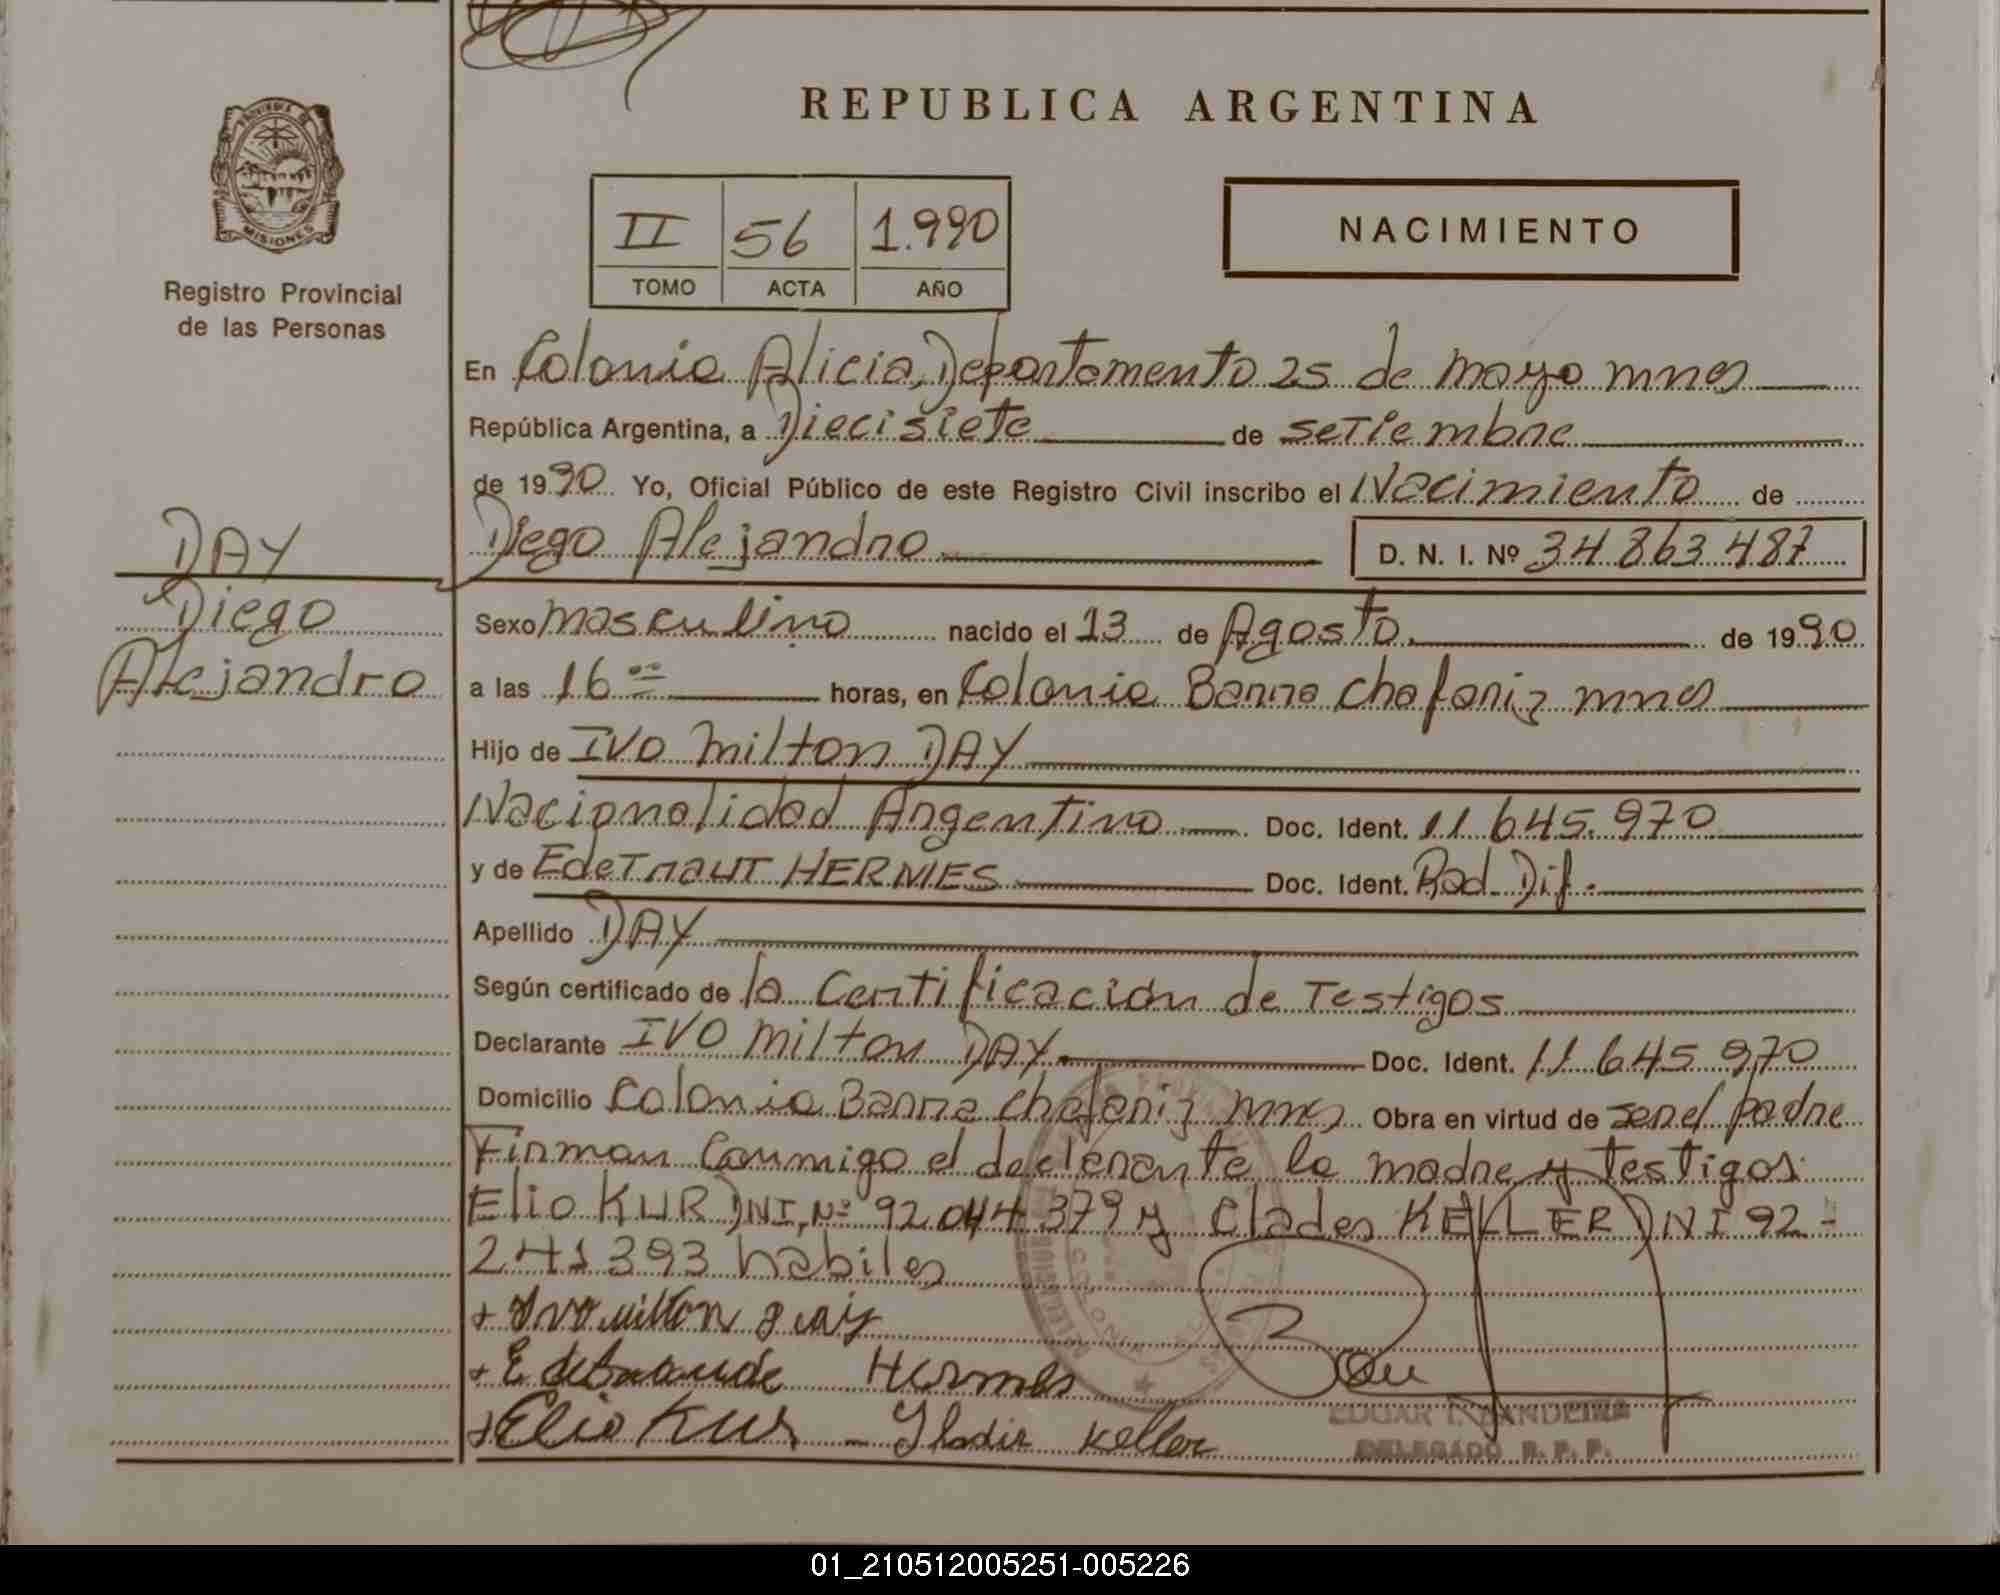 REPUBLICA ARGENTINA
PROVINCIA DE
MISIONES
Registro Provincial
de las Personas
II 56 1.990
TOMO ACTA AÑO
NACIMIENTO
En Colonia Alicia, Departamento 25 de mayo mnes
República Argentina, a Diecisiete de setiembre
de 1990 Yo, Oficial Público de este Registro Civil inscribo el Nacimiento de
Diego Alejandro D. N. I. Nº 34.863.487
DAY
Diego
Alejandro
Sexo masculino nacido el 13 de Agosto de 1990
a las 16 00 horas, en Colonia Barra Chafariz mnes
Hijo de IVO milton DAY
Nacionalidad Argentino Doc. Ident. 11.645.970
y de EdeTraut HERMES Doc. Ident. Rad. Dif.
Apellido DAY
Según certificado de la Certificación de Testigos
Declarante IVO milton DAY Doc. Ident. 11.645.970
Domicilio Colonia Barra Chafariz mnes Obra en virtud de ser el padre
Firman Conmigo el declarante la madre y testigos
Elio KUR DNI, Nº 92.044.379 y Clades KELLER DNI 92-
241393 habiles
+ Ivo milton day
+ Hermes
+ Elio Kur - Keller
EDGAR L. BANDEIRA
DELEGADO R. P. P.
01_210512005251-005226